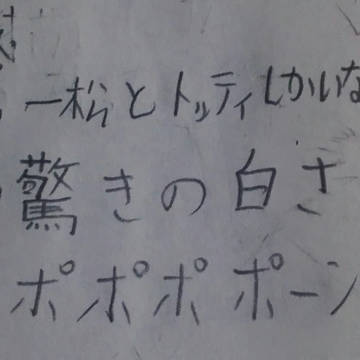 一松とトッティしかいな
驚きの白さ
ポポポポーン